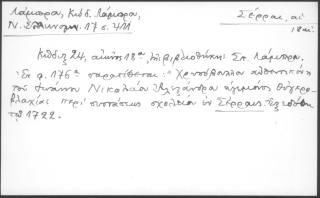 Λάμπρου, Κώδ. Λάμπρου,
Ν. Ἑλληνομ. 17 σ. 411
Σέρραι, αἱ
18 αἰ.
Κώδιξ 24, αἰῶνος 18ου, βιβλιοθήκης Σπ. Λάμπρου.
Ἐν φ. 176α παρατίθεται: "Χρυσόβουλλον αὐθεντικὸν
τοῦ Ἰωάννου Νικολάου Ἀλεξάνδρου ἡγεμόνος Οὐγκρο-
βλαχίας περὶ συστάσεως σχολείου ἐν Σέρραις
τοῦ 1722.